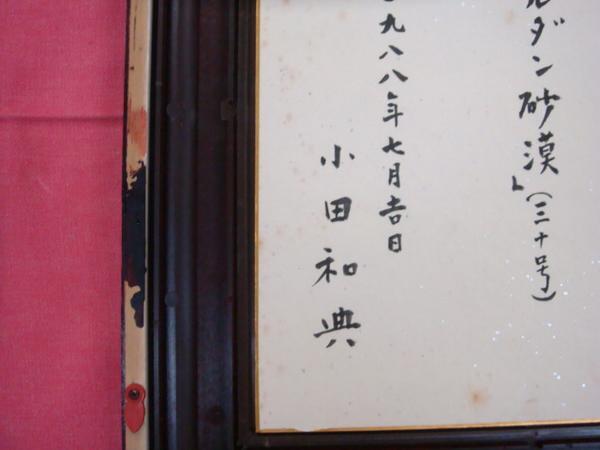 ルダン砂漠」(三十号)
九八八年七月吉日
小田和典